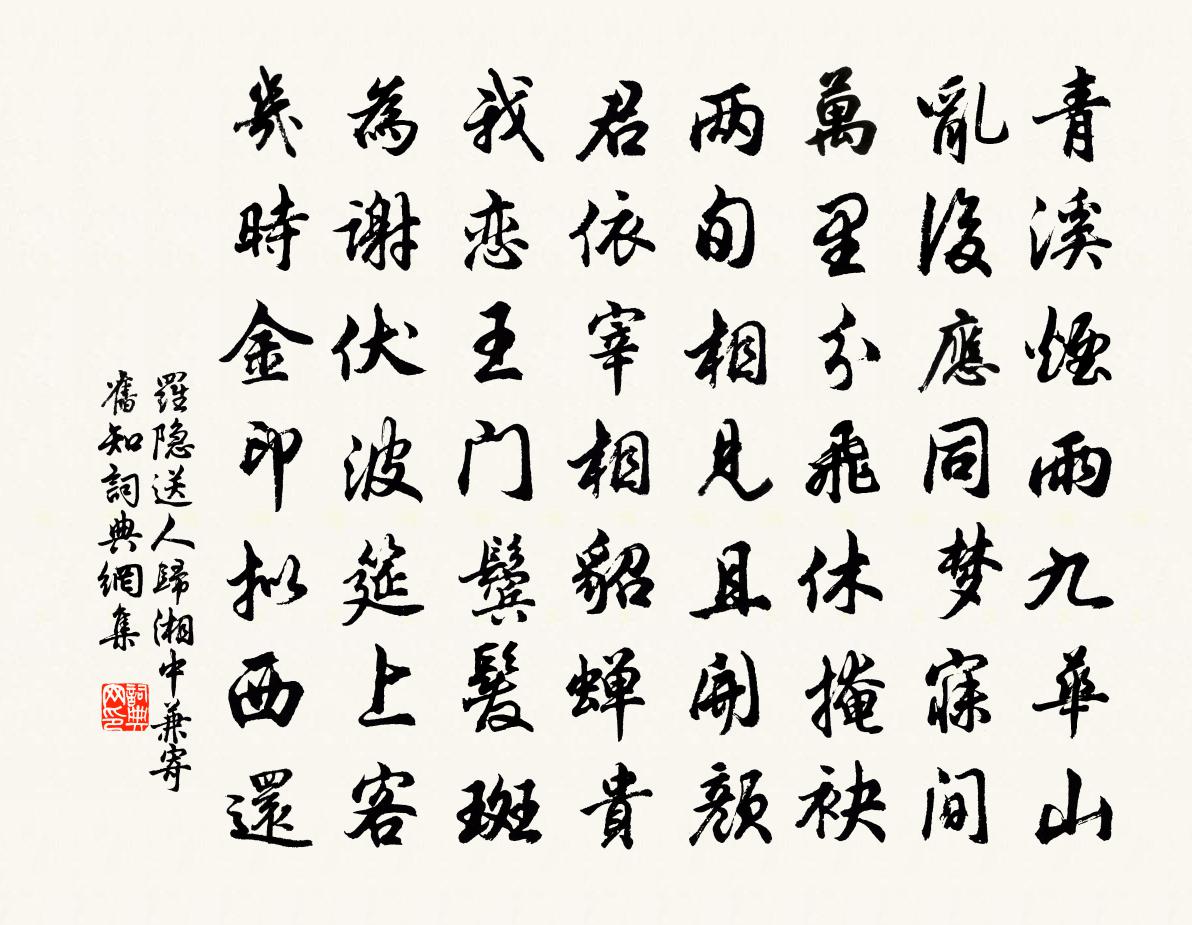 青溪煙雨九華山
亂後應同夢寐间
萬里分飛休掩袂
两旬相見且開顏
君依宰相貂蝉貴
我恋王门鬓髮斑
為謝伏波筵上客
幾時金印拟西還
羅隐送人歸湘中兼寄
舊知詞典網集
詞典网印